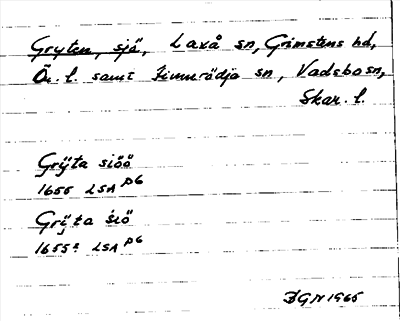 Gryten, sjö, Laxå sn, Grimstens hd,
Ör. l. samt Finnrödja sn, Vadsbo sn,
Skar. l.
Grÿta siöö
1655 LSA P6
Grÿta siö
1655? LSA P6
1965